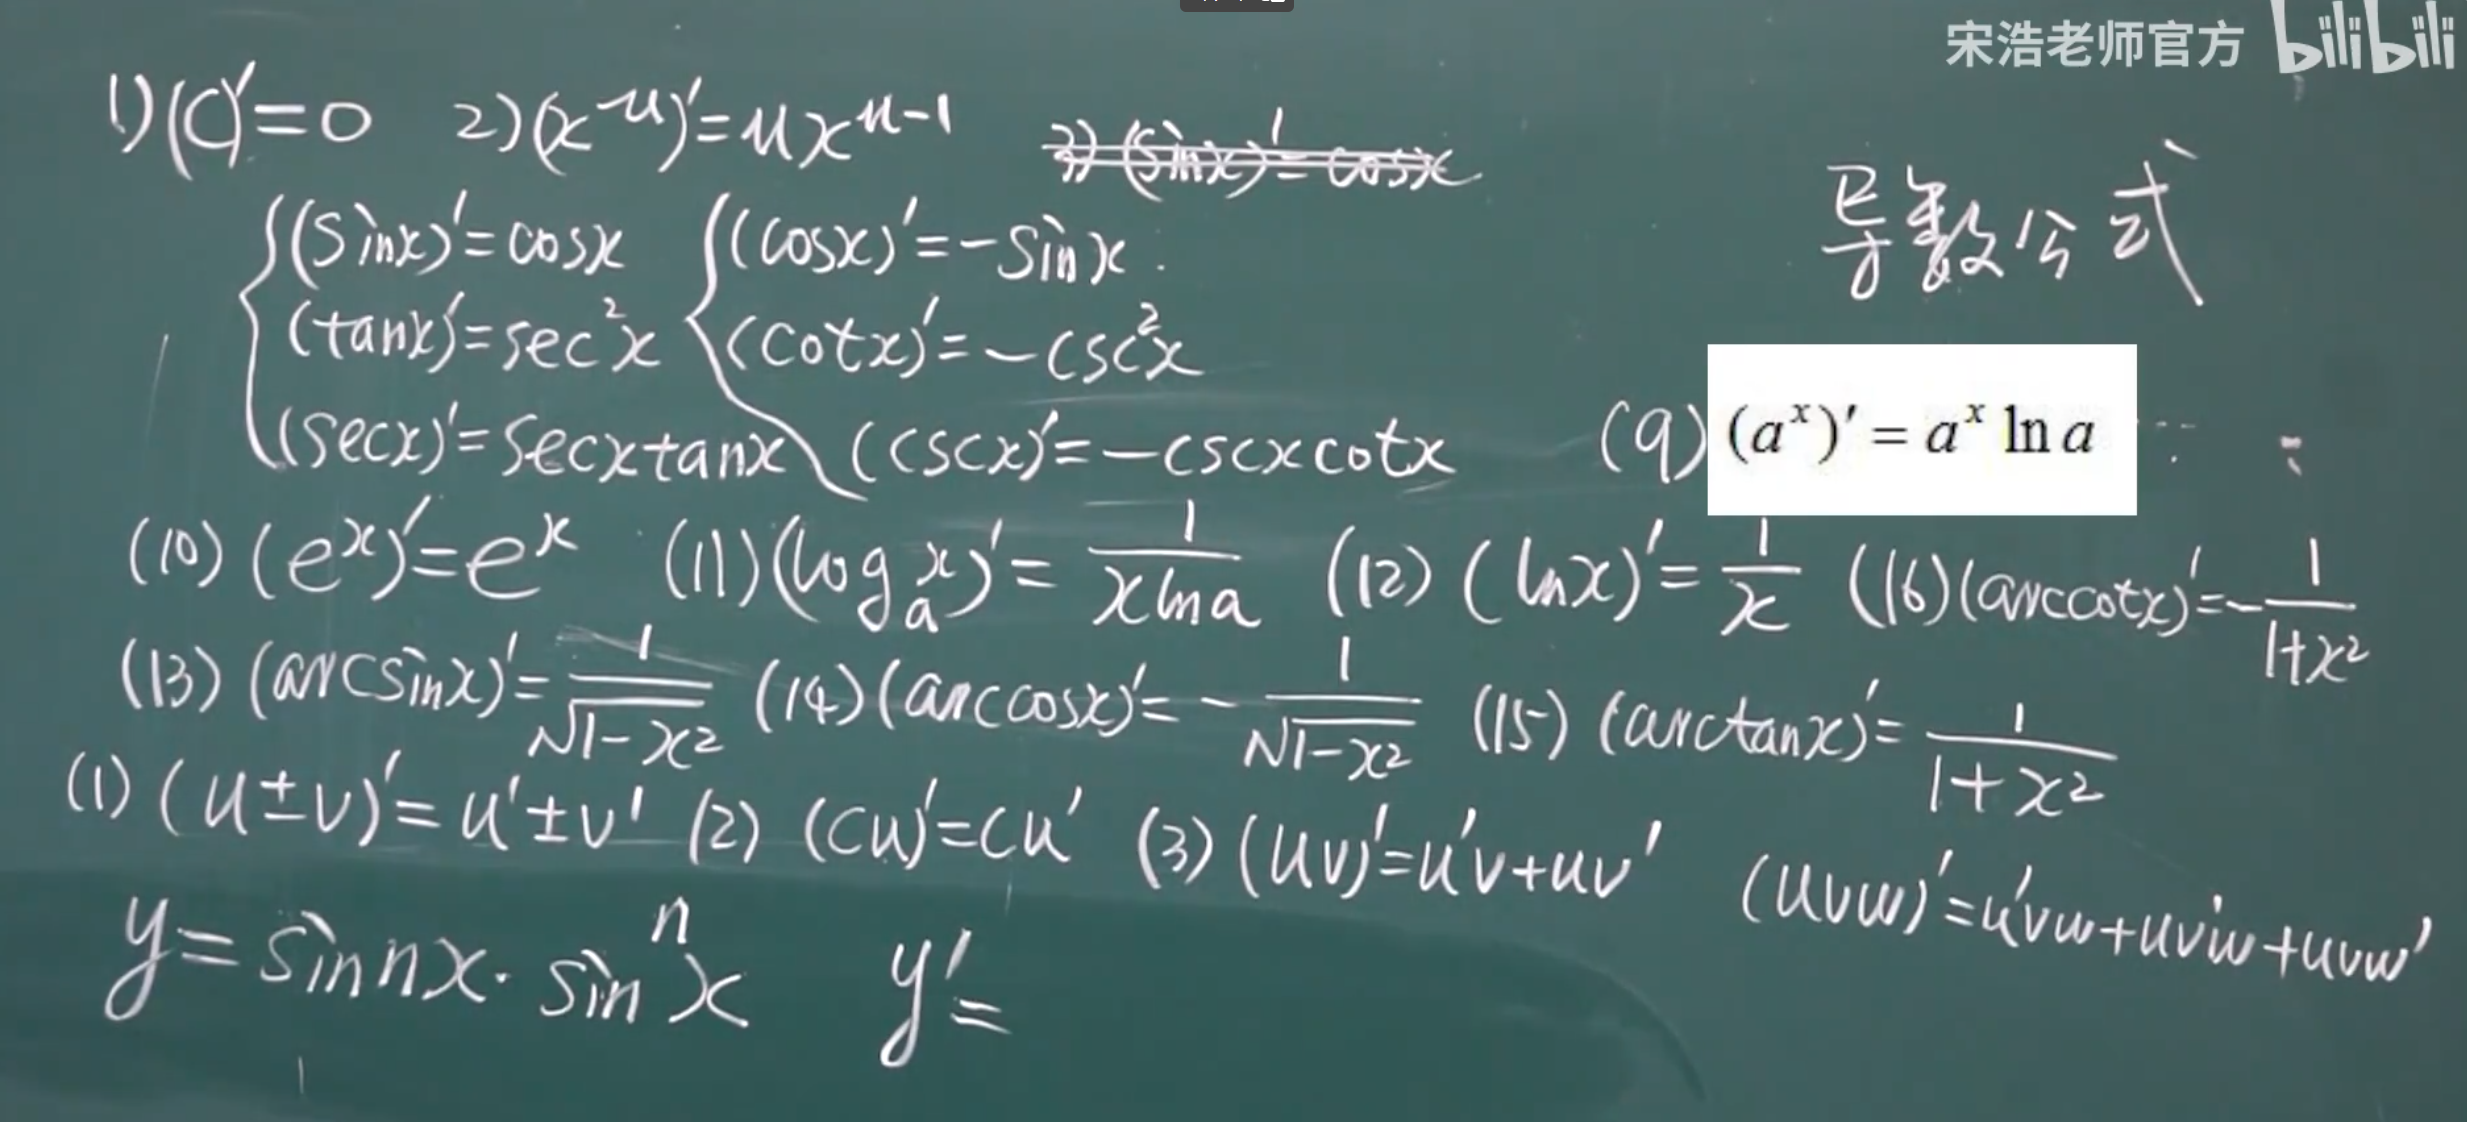 宋浩老师官方 bilibili
1) (C)'=0 2) (x^u)'=ux^{u-1} 3) (sinx)'=cosx
导数公式
(sinx)'=cosx (cosx)'=-sinx
(tanx)'=sec²x (cotx)'=-csc²x
(secx)'=secxtanx (cscx)'=-cscxcotx (9) (a^x)'=a^x ln a
(10) (e^x)'=e^x (11) (log_a x)'=1/(xlna) (12) (lnx)'=1/x (16) (arccotx)'=-1/(1+x²)
(13) (arcsinx)'=1/√(1-x²) (14) (arccosx)'=-1/√(1-x²) (15) (arctanx)'=1/(1+x²)
(1) (u±v)'=u'±v' (2) (cu)'=cu' (3) (uv)'=u'v+uv' (uvw)'=u'vw+uv'w+uvw'
y=sinnx·sin^n x y'=